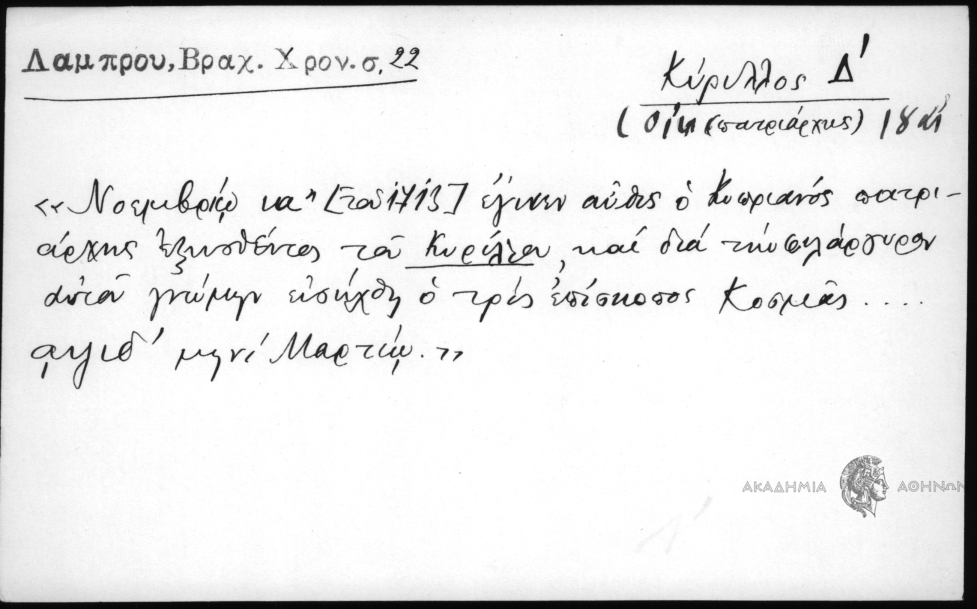 Λαμπρου, Βραχ. Χρον. σ, 22
Κύριλλος Δ'
(Οἰκ (πατριάρχης) 18
«Νοεμβρίῳ κα" [τοῦ 1713] ἐγένετο αὖθις ὁ Κυπριανός πατρι-
άρχης ἐξωσθέντος τοῦ Κυρίλλου, καί διά τήν φιλάργυρον
αὐτοῦ γνώμην εἰσήχθη ὁ τρίς ἐπίσκοπος Κοσμᾶς ....
αψιδ' μηνί Μαρτίῳ.»
ΑΚΑΔΗΜΙΑ ΑΘΗΝΩΝ